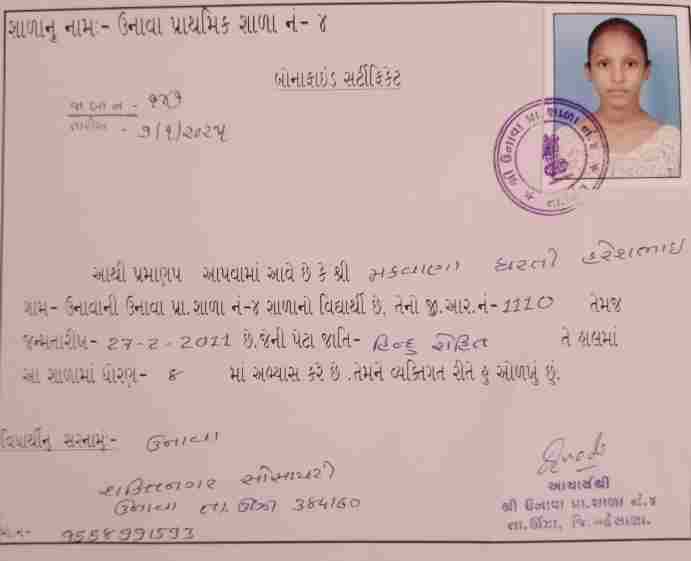 શાળાનુ નામ:- ઉનાવા પ્રાથમિક શાળા નં- ૪
બોનાફાઇડ સર્ટીફિકેટ
તારીખ - ૭/૧/૨૦૨૫
શ્રી ઉનાવા પ્રા. શાળા નં. ૪
આથી પ્રમાણપ આપવામાં આવે છે કે શ્રી મકવાણા ધરતી હરેશભાઇ
ગામ- ઉનાવાની ઉનાવા પ્રા.શાળા નં-૪ શાળાનો વિદ્યાર્થી છે. તેનો જી.આર.નં- 1110 તેમજ
જન્મતારીખ- 27-2-2011 છે.જેની પેટા જાતિ- હિન્દુ રોહિત તે હાલમાં
આ શાળામાં ધોરણ- ૮ માં અભ્યાસ કરે છે .તેમને વ્યક્તિગત રીતે હુ ઓળખું છું.
વિદ્યાર્થીનુ સરનામુ:- ઉનાવા
શક્તિનગર સોસાયટી
ઉનાવા તા. ઊંઝા 384160
9558991593
આચાર્યશ્રી
શ્રી ઉનાવા પ્રા.શાળા નં.૪
તા.ઊંઝા, જિ.મહેસાણા.